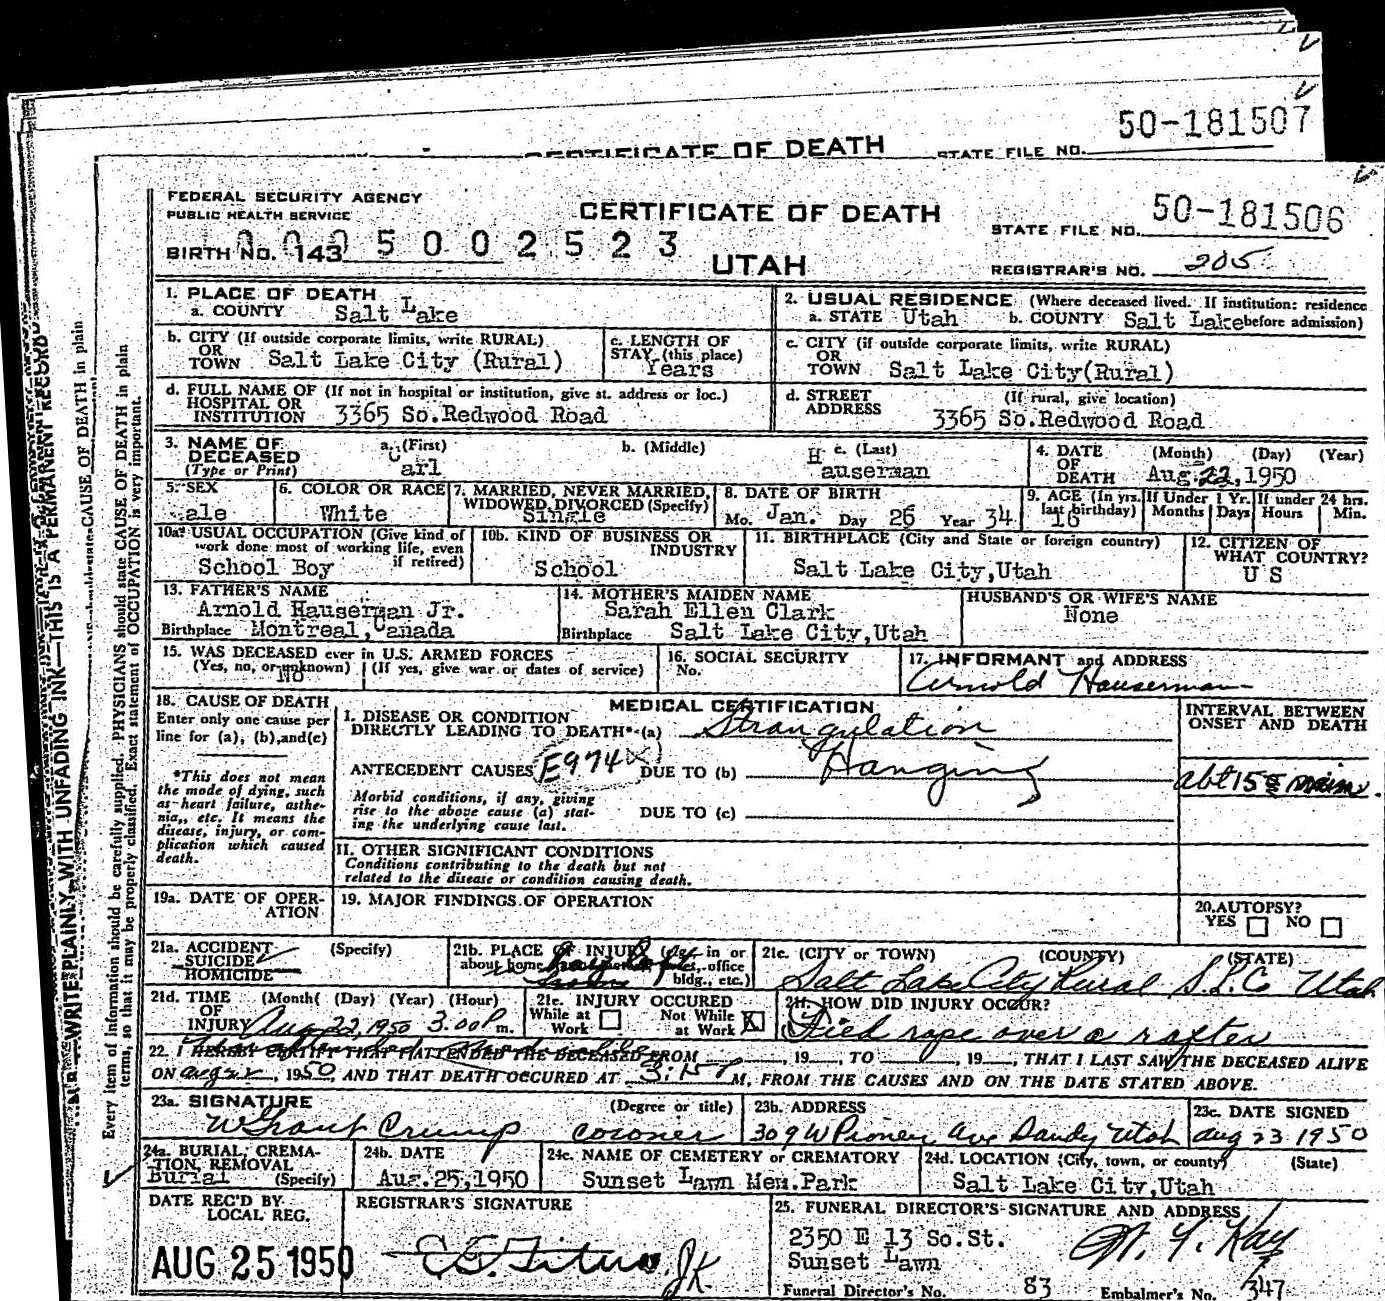 50-181507
CERTIFICATE OF DEATH STATE FILE NO.
FEDERAL SECURITY AGENCY
PUBLIC HEALTH SERVICE
CERTIFICATE OF DEATH
50-181506
STATE FILE NO.
BIRTH NO. 143 0005002523
UTAH
REGISTRAR'S NO. 205
1. PLACE OF DEATH
a. COUNTY Salt Lake
2. USUAL RESIDENCE (Where deceased lived. If institution: residence
a. STATE Utah b. COUNTY Salt Lake before admission)
b. CITY (If outside corporate limits, write RURAL)
OR
TOWN Salt Lake City (Rural)
c. LENGTH OF
STAY (this place)
Years
c. CITY (if outside corporate limits, write RURAL)
OR
TOWN Salt Lake City(Rural)
d. FULL NAME OF (If not in hospital or institution, give st. address or loc.)
HOSPITAL OR
INSTITUTION 3365 So.Redwood Road
d. STREET (If rural, give location)
ADDRESS 3365 So.Redwood Road
3. NAME OF
DECEASED
(Type or Print)
a. (First) b. (Middle) c. (Last)
Carl Hauserman
4. DATE (Month) (Day) (Year)
OF
DEATH Aug.22,1950
5. SEX
ale
6. COLOR OR RACE
White
7. MARRIED, NEVER MARRIED,
WIDOWED, DIVORCED (Specify)
Single
8. DATE OF BIRTH
Mo. Jan. Day 26 Year 34
9. AGE (In yrs.
last birthday)
16
If Under 1 Yr.
Months Days
If under 24 hrs.
Hours Min.
10a. USUAL OCCUPATION (Give kind of
work done most of working life, even
if retired)
School Boy
10b. KIND OF BUSINESS OR
INDUSTRY
School
11. BIRTHPLACE (City and State or foreign country)
Salt Lake City,Utah
12. CITIZEN OF
WHAT COUNTRY?
U S
13. FATHER'S NAME
Arnold Hauserman Jr.
Birthplace Montreal,Canada
14. MOTHER'S MAIDEN NAME
Sarah Ellen Clark
Birthplace Salt Lake City,Utah
HUSBAND'S OR WIFE'S NAME
None
15. WAS DECEASED ever in U.S. ARMED FORCES
(Yes, no, or unknown) (If yes, give war or dates of service)
No
16. SOCIAL SECURITY
No.
17. INFORMANT and ADDRESS
Arnold Hauserman
18. CAUSE OF DEATH
Enter only one cause per
line for (a), (b), and (c)
*This does not mean
the mode of dying, such
as heart failure, asthe-
nia, etc. It means the
disease, injury, or com-
plication which caused
death.
MEDICAL CERTIFICATION
I. DISEASE OR CONDITION
DIRECTLY LEADING TO DEATH* (a) Strangulation
ANTECEDENT CAUSES E974X DUE TO (b) Hanging
Morbid conditions, if any, giving
rise to the above cause (a) stat-
ing the underlying cause last.
DUE TO (c)
INTERVAL BETWEEN
ONSET AND DEATH
abt 15 min.
II. OTHER SIGNIFICANT CONDITIONS
Conditions contributing to the death but not
related to the disease or condition causing death.
19a. DATE OF OPER-
ATION
19. MAJOR FINDINGS OF OPERATION
20. AUTOPSY?
YES NO
21a. ACCIDENT (Specify)
SUICIDE
HOMICIDE
21b. PLACE OF INJURY in or
about home office
bldg., etc.)
21c. (CITY or TOWN) (COUNTY) (STATE)
Salt Lake City Rural S.L.Co Utah
21d. TIME (Month( (Day) (Year) (Hour)
OF
INJURY Aug 22, 1950 3.00P m.
21e. INJURY OCCURED
While at Work Not While at Work X
21f. HOW DID INJURY OCCUR?
Tied rope over a rafter
22. I HEREBY CERTIFY THAT I ATTENDED THE DECEASED FROM , 19 , TO , 19 , THAT I LAST SAW THE DECEASED ALIVE
ON , 1950, AND THAT DEATH OCCURED AT 3:15P M, FROM THE CAUSES AND ON THE DATE STATED ABOVE.
23a. SIGNATURE (Degree or title)
W Grant Crump coroner
23b. ADDRESS
309 W Pioneer Ave Sandy Utah
23c. DATE SIGNED
Aug 23 1950
24a. BURIAL, CREMA-
TION, REMOVAL
Burial (Specify)
24b. DATE
Aug.25,1950
24c. NAME OF CEMETERY or CREMATORY
Sunset Lawn Mem.Park
24d. LOCATION (City, town, or county) (State)
Salt Lake City,Utah
DATE REC'D BY
LOCAL REG.
AUG 25 1950
REGISTRAR'S SIGNATURE
JK
25. FUNERAL DIRECTOR'S SIGNATURE AND ADDRESS
2350 E 13 So.St.
Sunset Lawn
Funeral Director's No. 83 Embalmer's No. 347
WRITE PLAINLY, WITH UNFADING INK—THIS IS A PERMANENT RECORD
Every item of information should be carefully supplied. PHYSICIANS should state CAUSE OF DEATH in plain
terms, so that it may be properly classified. Exact statement of OCCUPATION is very important.
CAUSE OF DEATH in plain